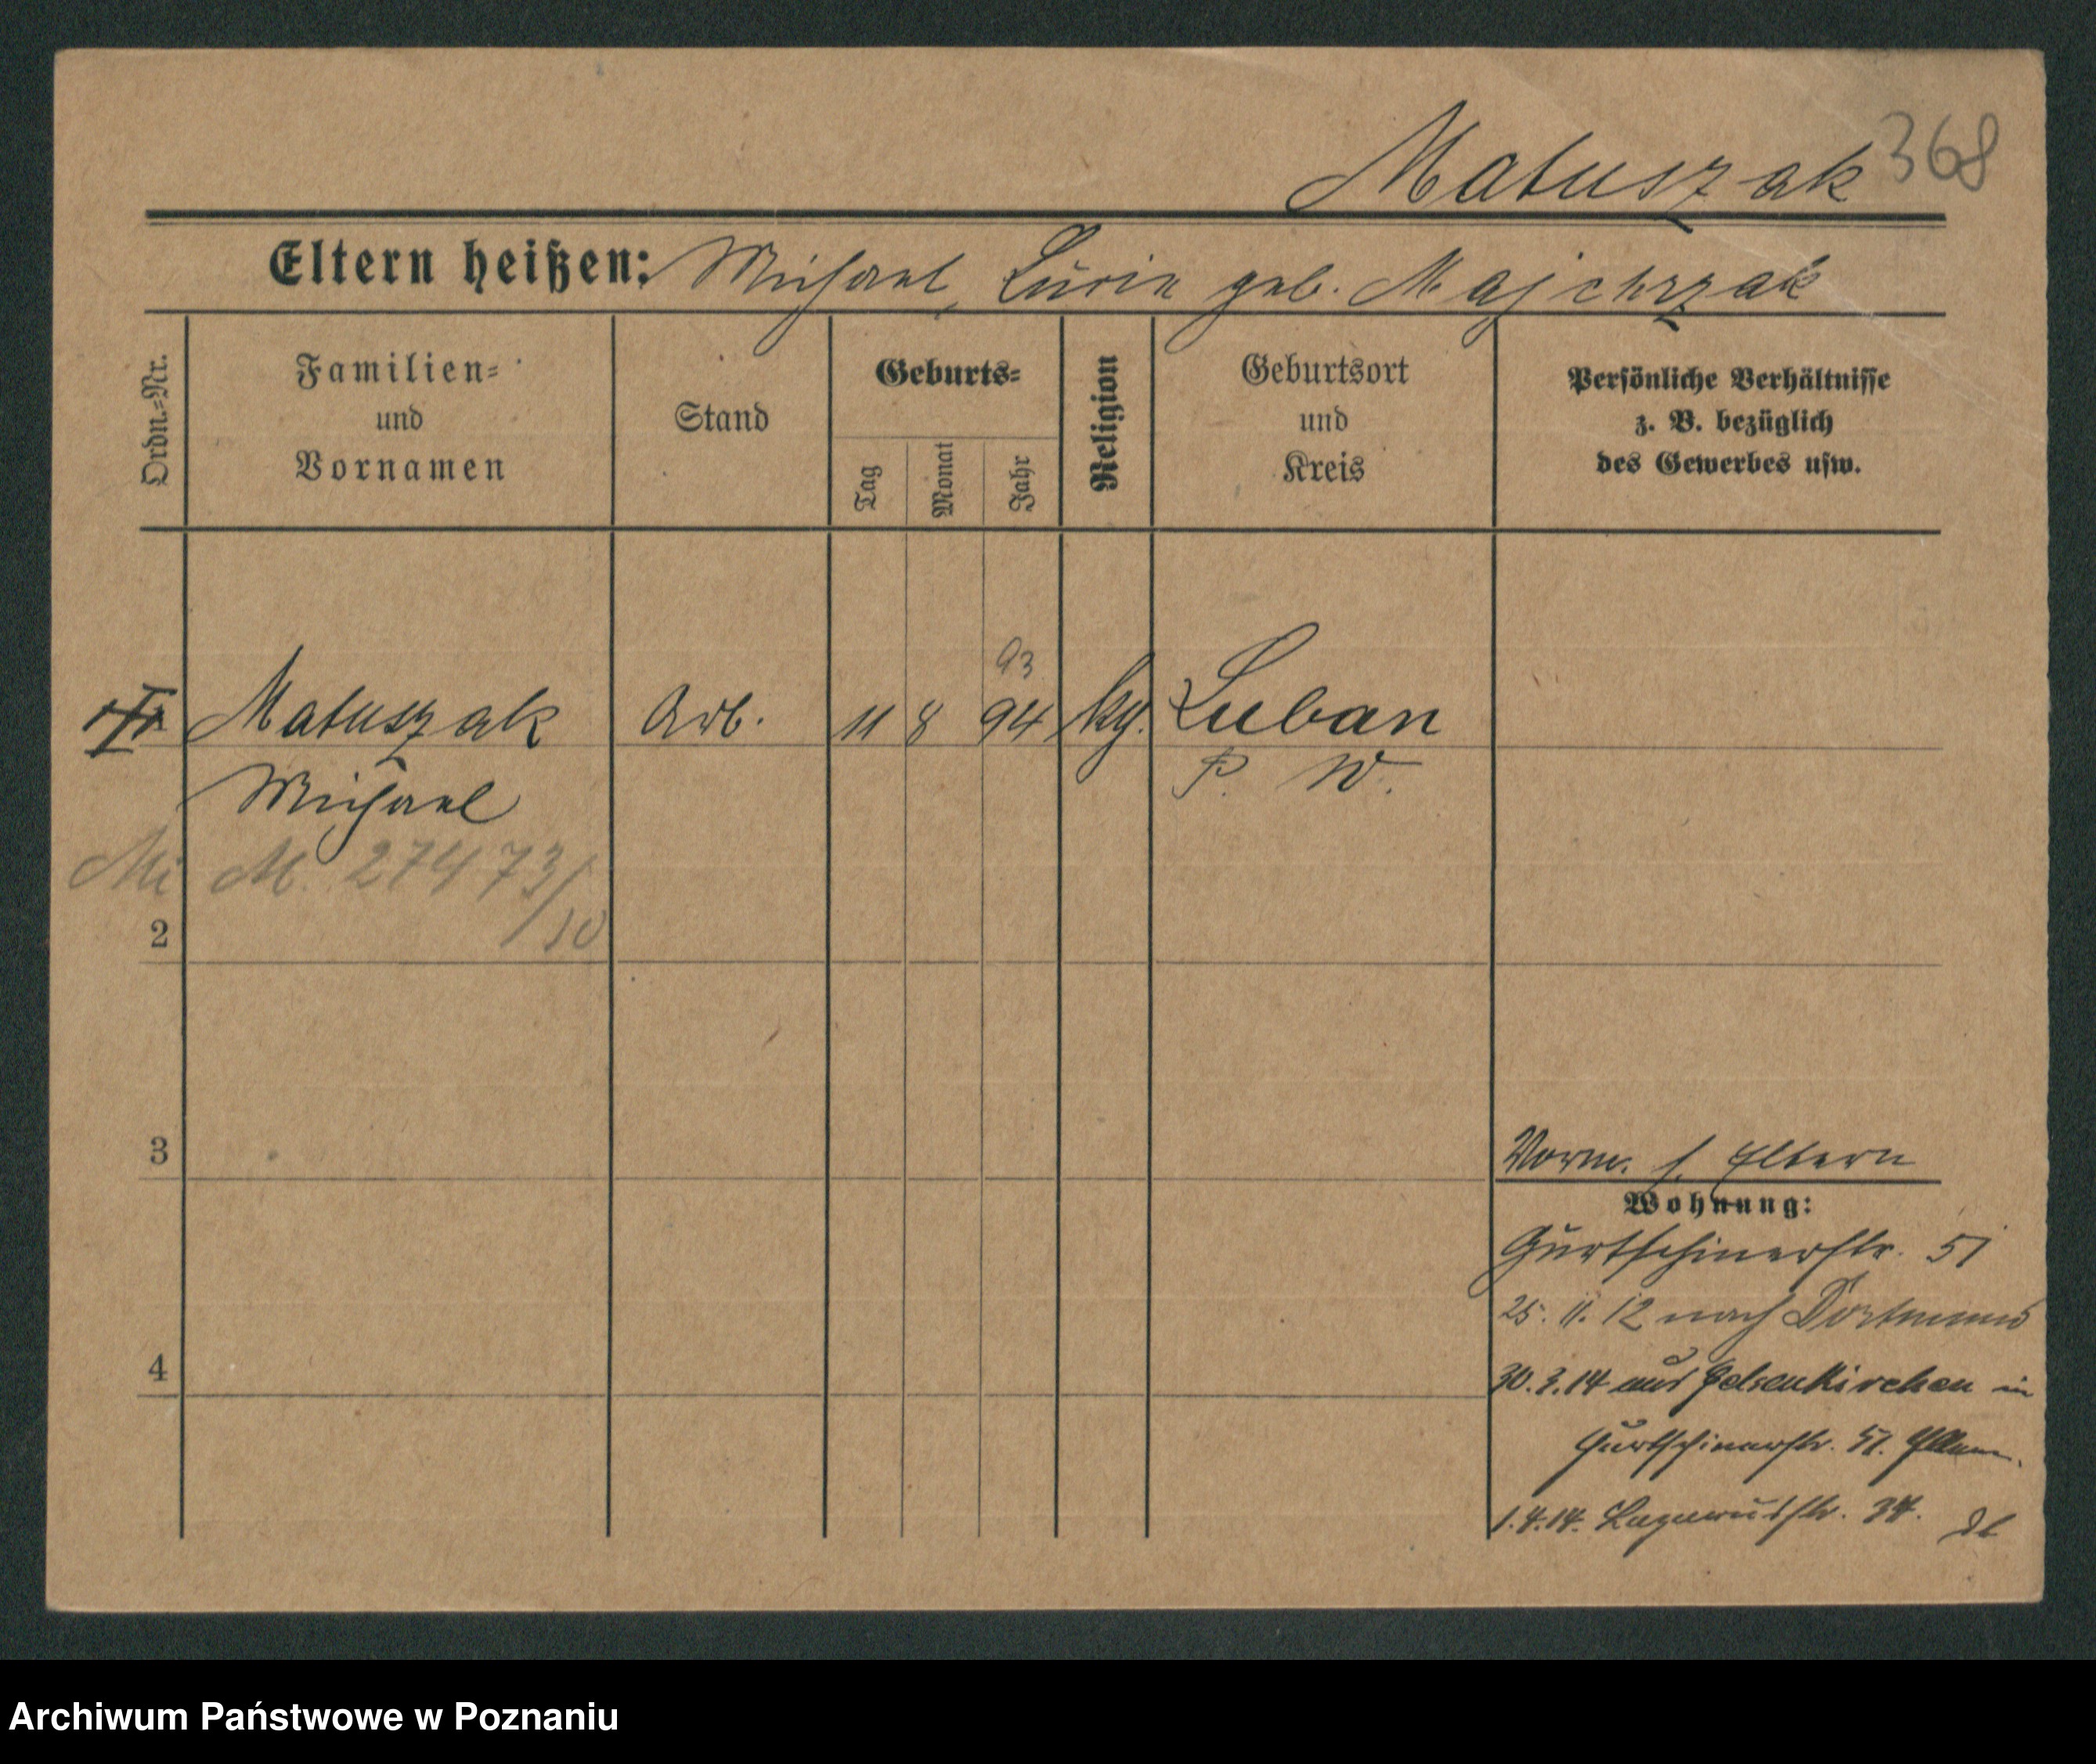 Matuszak 368
Eltern heißen: Michael, Lucie geb. Majchrzak
Ordn.=Nr.
Familien=
und
Vornamen
Stand
Geburts=
Tag
Monat
Jahr
Religion
Geburtsort
und
Kreis
Persönliche Verhältnisse
z. B. bezüglich
des Gewerbes usw.
93
Matuszak Arb. 11 8 94 kg. Luban
Michael P. W.
M. 27473/10
2
3
Vorm. s. Eltern
Wohnung:
Gurtschinerstr. 51
25. 11. 12 nach Dortmund
4
30. 3. 14 aus Gelsenkirchen in
Gurtschinerstr. 51.
1. 4. 14. 34.
Archiwum Państwowe w Poznaniu